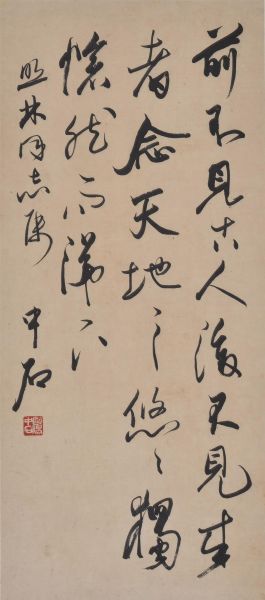 前不見古人後不見来
者念天地之悠々獨
愴然而涕下
照林同志属
中石